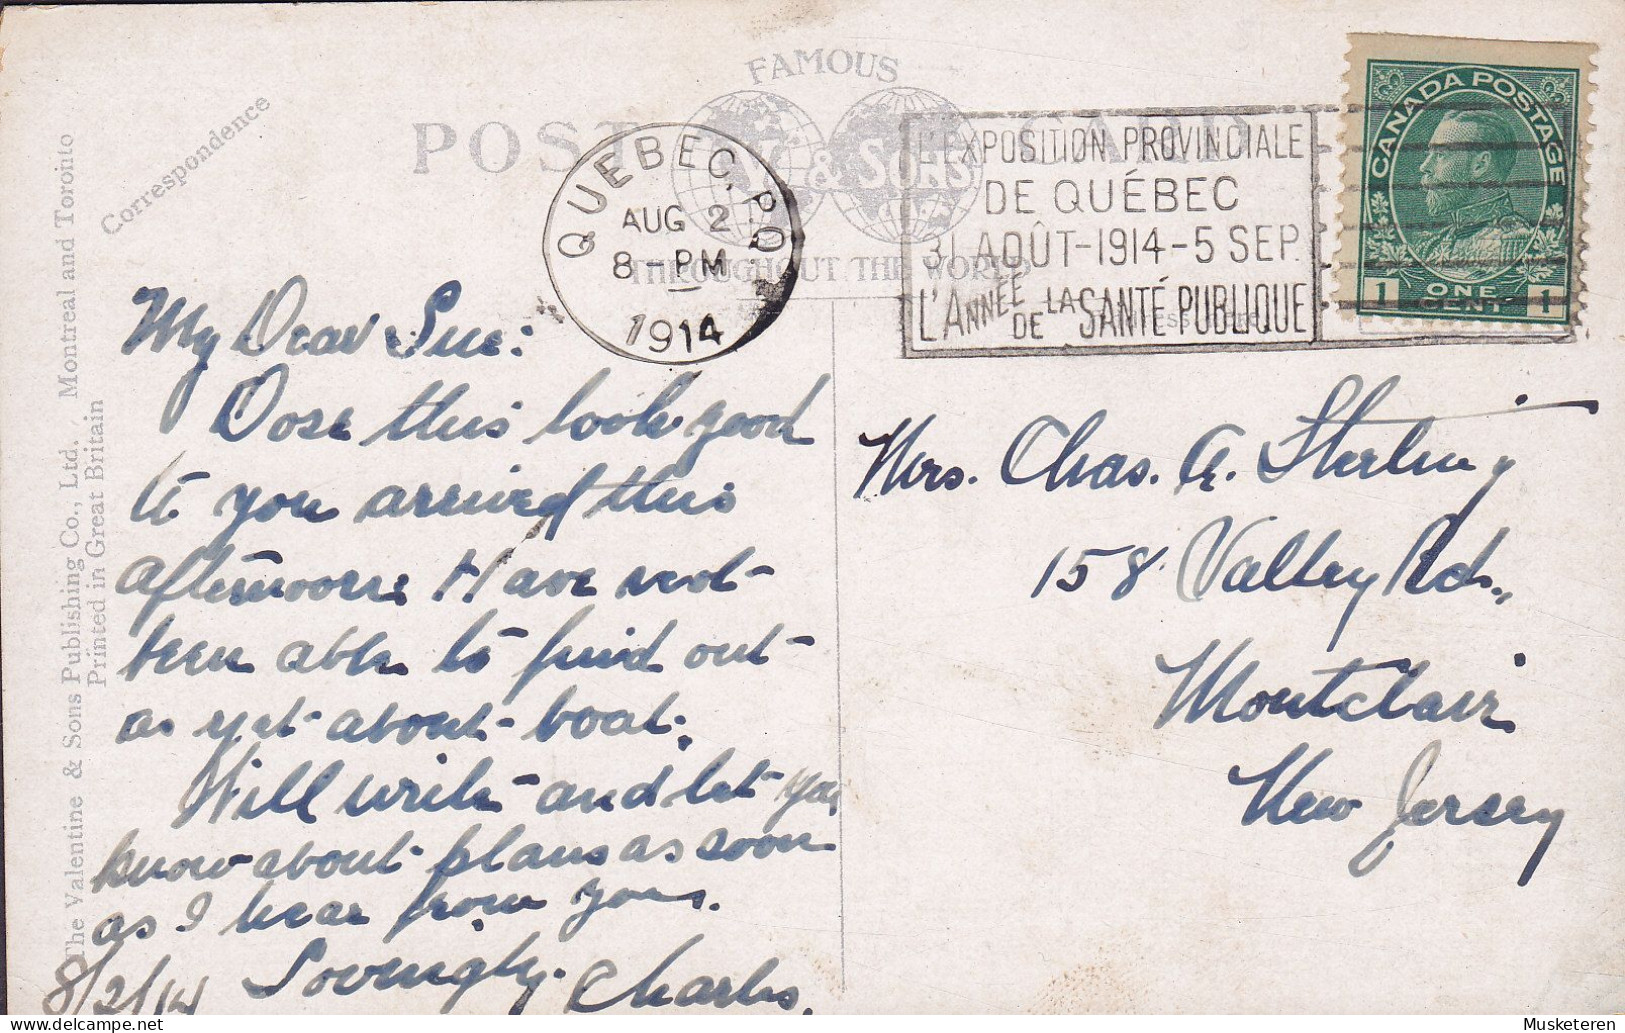 FAMOUS
POST CARD
V & SONS
THROUGHOUT THE WORLD
Correspondence
The Valentine & Sons Publishing Co., Ltd. Montreal and Toronto
Printed in Great Britain
QUEBEC, P.Q.
AUG 2
8-PM
1914
L'EXPOSITION PROVINCIALE
DE QUÉBEC
31 AOÛT-1914-5 SEP.
L'ANNÉE DE LA SANTÉ PUBLIQUE
CANADA POSTAGE
1 ONE CENT 1
My Dear Sue:
Dose this look good
to you arrived this
afternoon. Have not
been able to find out
as yet about boat.
Will write and let you
know about plans as soon
as I hear from you.
Lovingly.
Charles.
8/2/14
Mrs. Chas. A. Sterling
158 Valley Rd.,
Montclair
New Jersey
Musketeren
delcampe.net